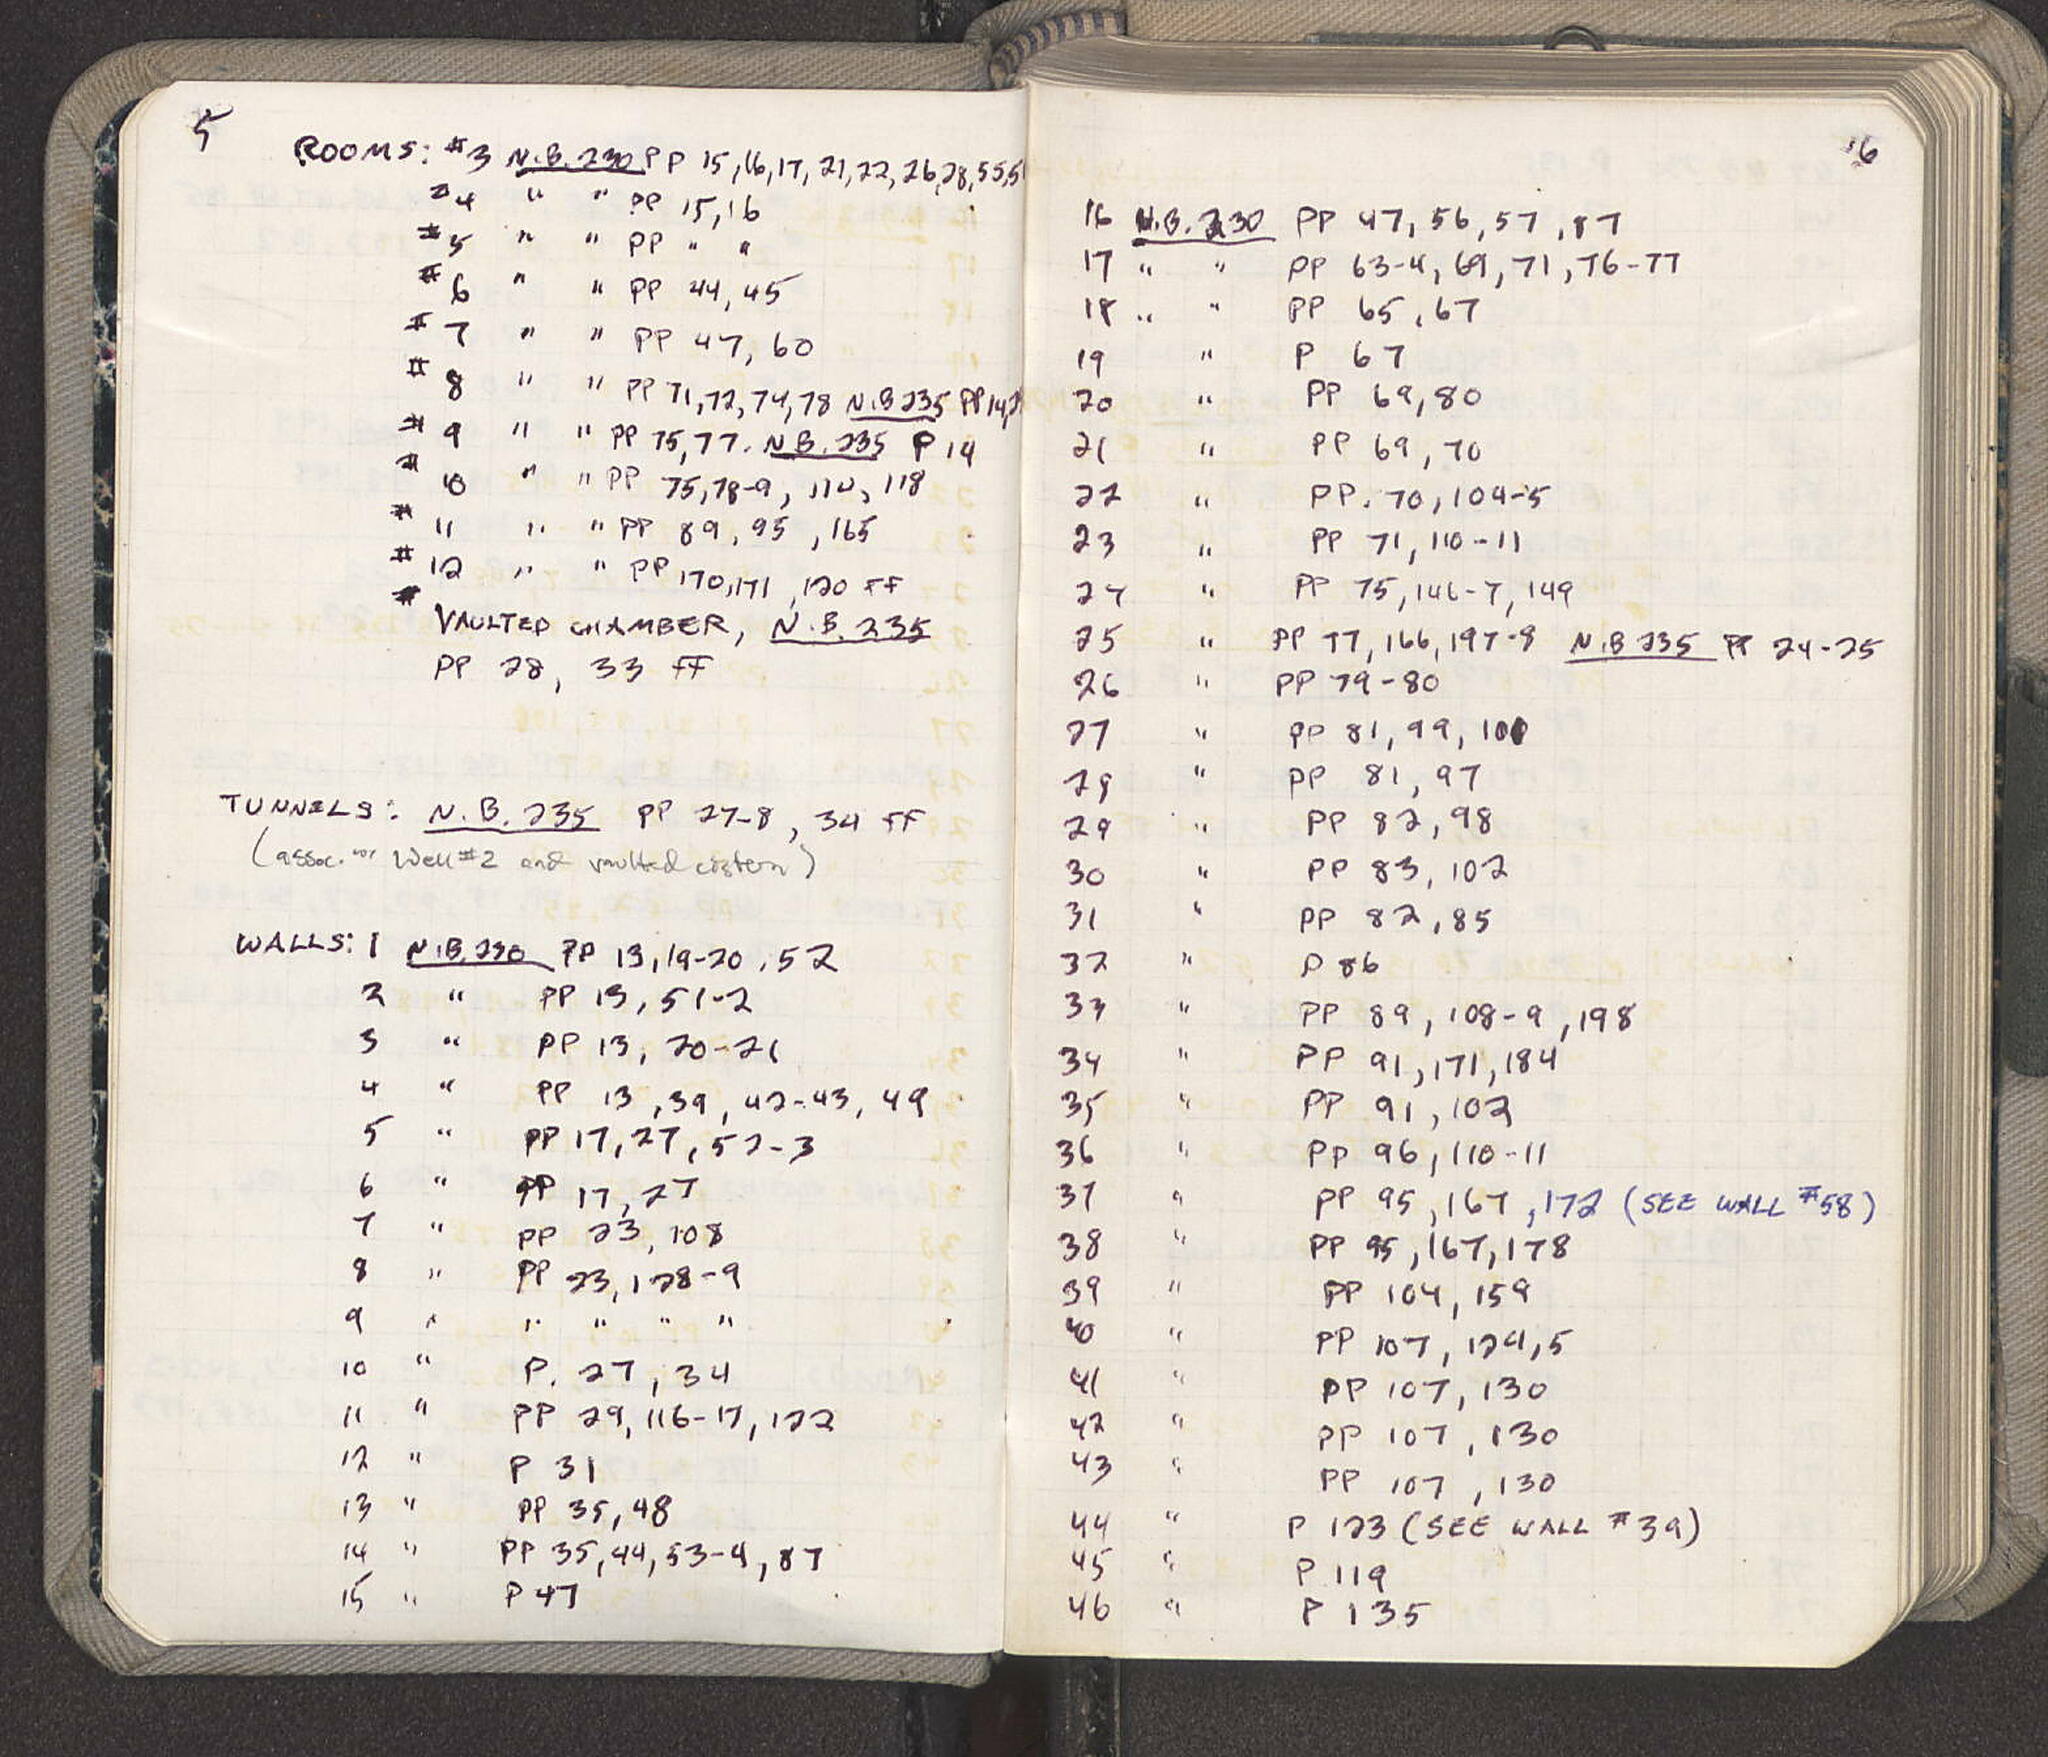 5
ROOMS: #3 N.B. 230 PP 15,16,17,21,22,26,28,55,5
#4 " " PP 15,16
#5 " " PP " "
#6 " " PP 44,45
#7 " " PP 47,60
#8 " " PP 71,72,74,78 N.B 235 PP 14,2
#9 " " PP 75,77. N.B. 235 P 14
#10 " " PP 75,78-9, 110, 118
#11 " " PP 89,95,165
#12 " " PP 170,171,120 FF
# VAULTED CHAMBER, N.B. 235
PP 28, 33 FF
TUNNELS: N.B. 235 PP 27-8, 34 FF
(assoc. w/ Well #2 and vaulted cistern)
WALLS: 1 N.B. 230 PP 13,19-20,52
2 " PP 13,51-2
3 " PP 13,20-21
4 " PP 13,39,42-43,49
5 " PP 17,27,52-3
6 " PP 17,27
7 " PP 23,108
8 " PP 23,128-9
9 " " " " "
10 " P. 27,34
11 " PP 29,116-17,122
12 " P 31
13 " PP 35,48
14 " PP 35,44,53-4,87
15 " P 47
6
16 N.B. 230 PP 47,56,57,87
17 " " PP 63-4,69,71,76-77
18 " " PP 65,67
19 " P 67
20 " PP 69,80
21 " PP 69,70
22 " PP. 70,104-5
23 " PP 71,110-11
24 " PP 75,146-7,149
25 " PP 77,166,197-8 N.B 235 PP 24-25
26 " PP 79-80
27 " PP 81,99,100
28 " PP 81,97
29 " PP 82,98
30 " PP 83,102
31 " PP 82,85
32 " P 86
33 " PP 89,108-9,198
34 " PP 91,171,184
35 " PP 91,102
36 " PP 96,110-11
37 " PP 95,167,172 (SEE WALL #58)
38 " PP 95,167,178
39 " PP 104,159
40 " PP 107,124,5
41 " PP 107,130
42 " PP 107,130
43 " PP 107,130
44 " P 123 (SEE WALL #39)
45 " P 119
46 " P 135